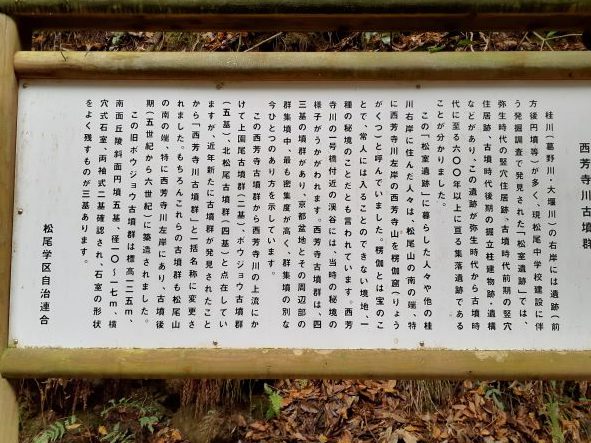 西芳寺川古墳群
桂川(葛野川・大堰川)の右岸には遺跡(前
方後円墳等)が多く、現松尾中学校建設に伴
う発掘調査で発見された「松室遺跡」では、
弥生時代の竪穴住居跡、古墳時代前期の竪穴
住居跡、古墳時代後期の掘立柱建物跡・遺構
などがあり、この遺跡が弥生時代から古墳時
代に至る六〇〇年以上に亘る集落遺跡である
ことが分かりました。
この「松室遺跡」に暮らした人々や他の桂
川右岸に住んだ人々は、松尾山の南の端、特
に西芳寺川左岸の西芳寺山を楞伽窟(りょう
がくつ)と呼んでいました。楞伽とは宝のこ
とで、常人には入ることのできない境地、一
種の秘境のことだとも言われています。西芳
寺川の一号橋付近の渓谷には、当時の秘境の
様子がうかがわれます。西芳寺古墳群は、四
三基の墳群があり、京都盆地とその周辺部の
群集墳中、最も密集度が高く、群集墳の別な
今ひとつのあり方を示しています。
この西芳寺古墳群から西芳寺川の上流にか
けて上園尾古墳群(二基)、ボウジョウ古墳群
(五基)、北松尾古墳群(四基)と点在してい
ますが、近年新たに古墳群が発見されたこと
から「西芳寺川古墳群」と一括名称に変更さ
れました。もちろんこれらの古墳群も松尾山
の南の端、特に西芳寺川左岸にあり、古墳後
期(五世紀から六世紀)に築造されました。
この旧ボウジョウ古墳群は標高一二五m、
南面丘陵斜面円墳五基、径一〇～一七m、横
穴式石室、両袖式二基確認され、石室の形状
をよく残すものが三基あります。
松尾学区自治連合